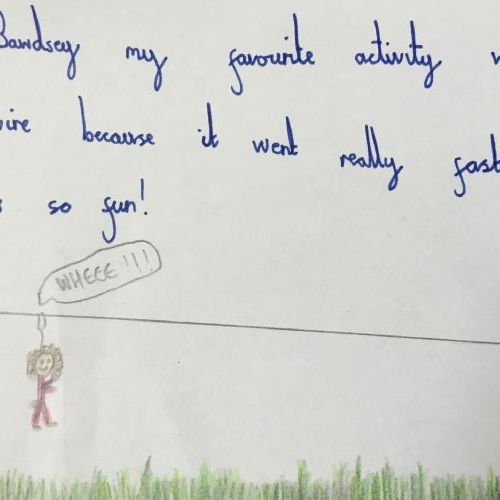 Bawdsey my favourite activity w
ire because it went really fast
s so fun!
WHEEE!!!